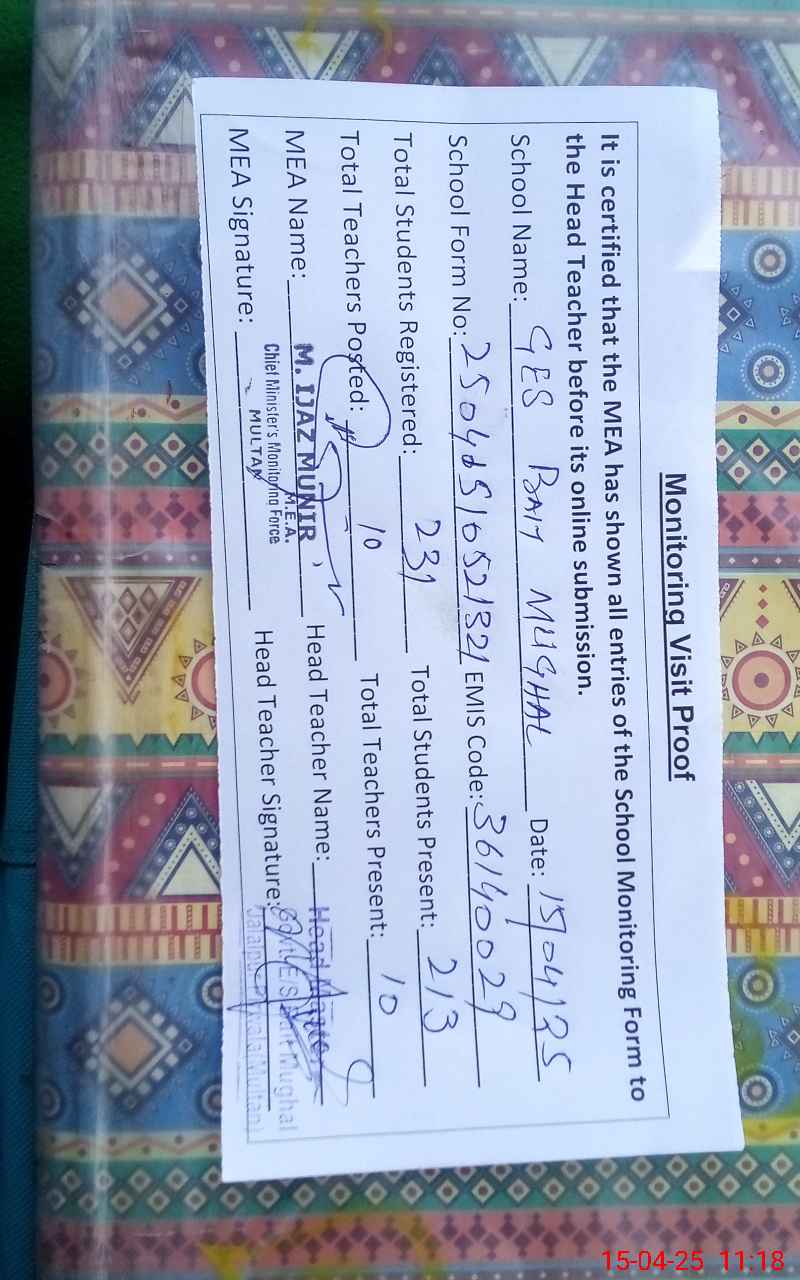 Monitoring Visit Proof
It is certified that the MEA has shown all entries of the School Monitoring Form to
the Head Teacher before its online submission.
School Name: GES BAIT MUGHAL Date: 15/04/25
School Form No: EMIS Code: 36140029
Total Students Registered: 231 Total Students Present: 213
Total Teachers Posted: 10 Total Teachers Present: 10
MEA Name: M. IJAZ MUNIR Head Teacher Name: Head
M.E.A.
Chief Minister's Monitoring Force
MULTAN
MEA Signature: Head Teacher Signature: Govt. E/S Mughal
Jalalpur Pirwala (Multan)
15-04-25 11:18